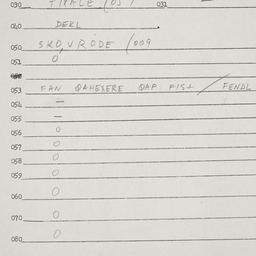 030 FINALE (03) 031
040 DEKL
050 SKD,VRÖDE (009
051 0
053 FAN QAHEXERE QAP FIST / FENDL
054 —
055 —
056 0
057 0
058 0
059 0
060 0
070 0
080 0